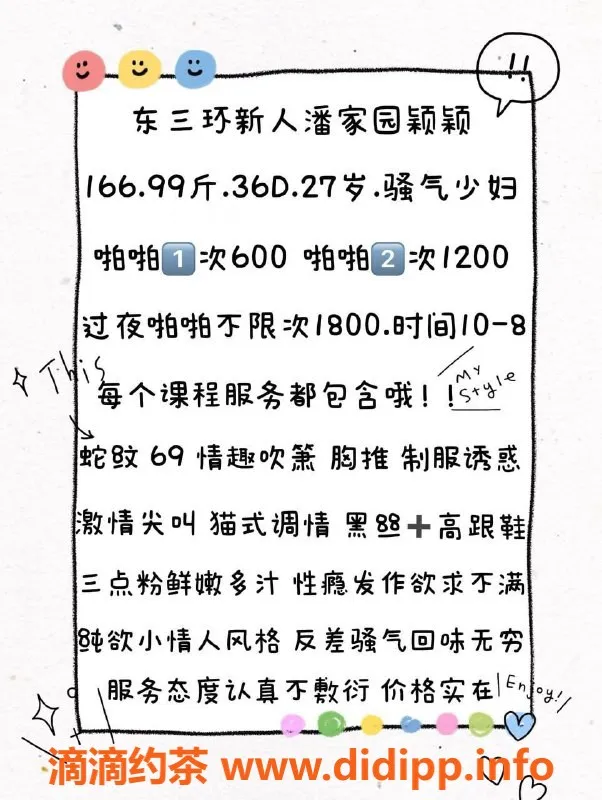 !!
东三环新人潘家园颖颖
166.99斤.36D.27岁.骚气少妇
啪啪1️⃣次600 啪啪2️⃣次1200
过夜啪啪不限次1800.时间10-8
This
每个课程服务都包含哦！！
My Style
蛇蚊 69 情趣吹箫 胸推 制服诱惑
激情尖叫 猫式调情 黑丝➕高跟鞋
三点粉鲜嫩多汁 性瘾发作欲求不满
纯欲小情人风格 反差骚气回味无穷
服务态度认真不敷衍 价格实在
Enjoy!
滴滴约茶 www.didipp.info